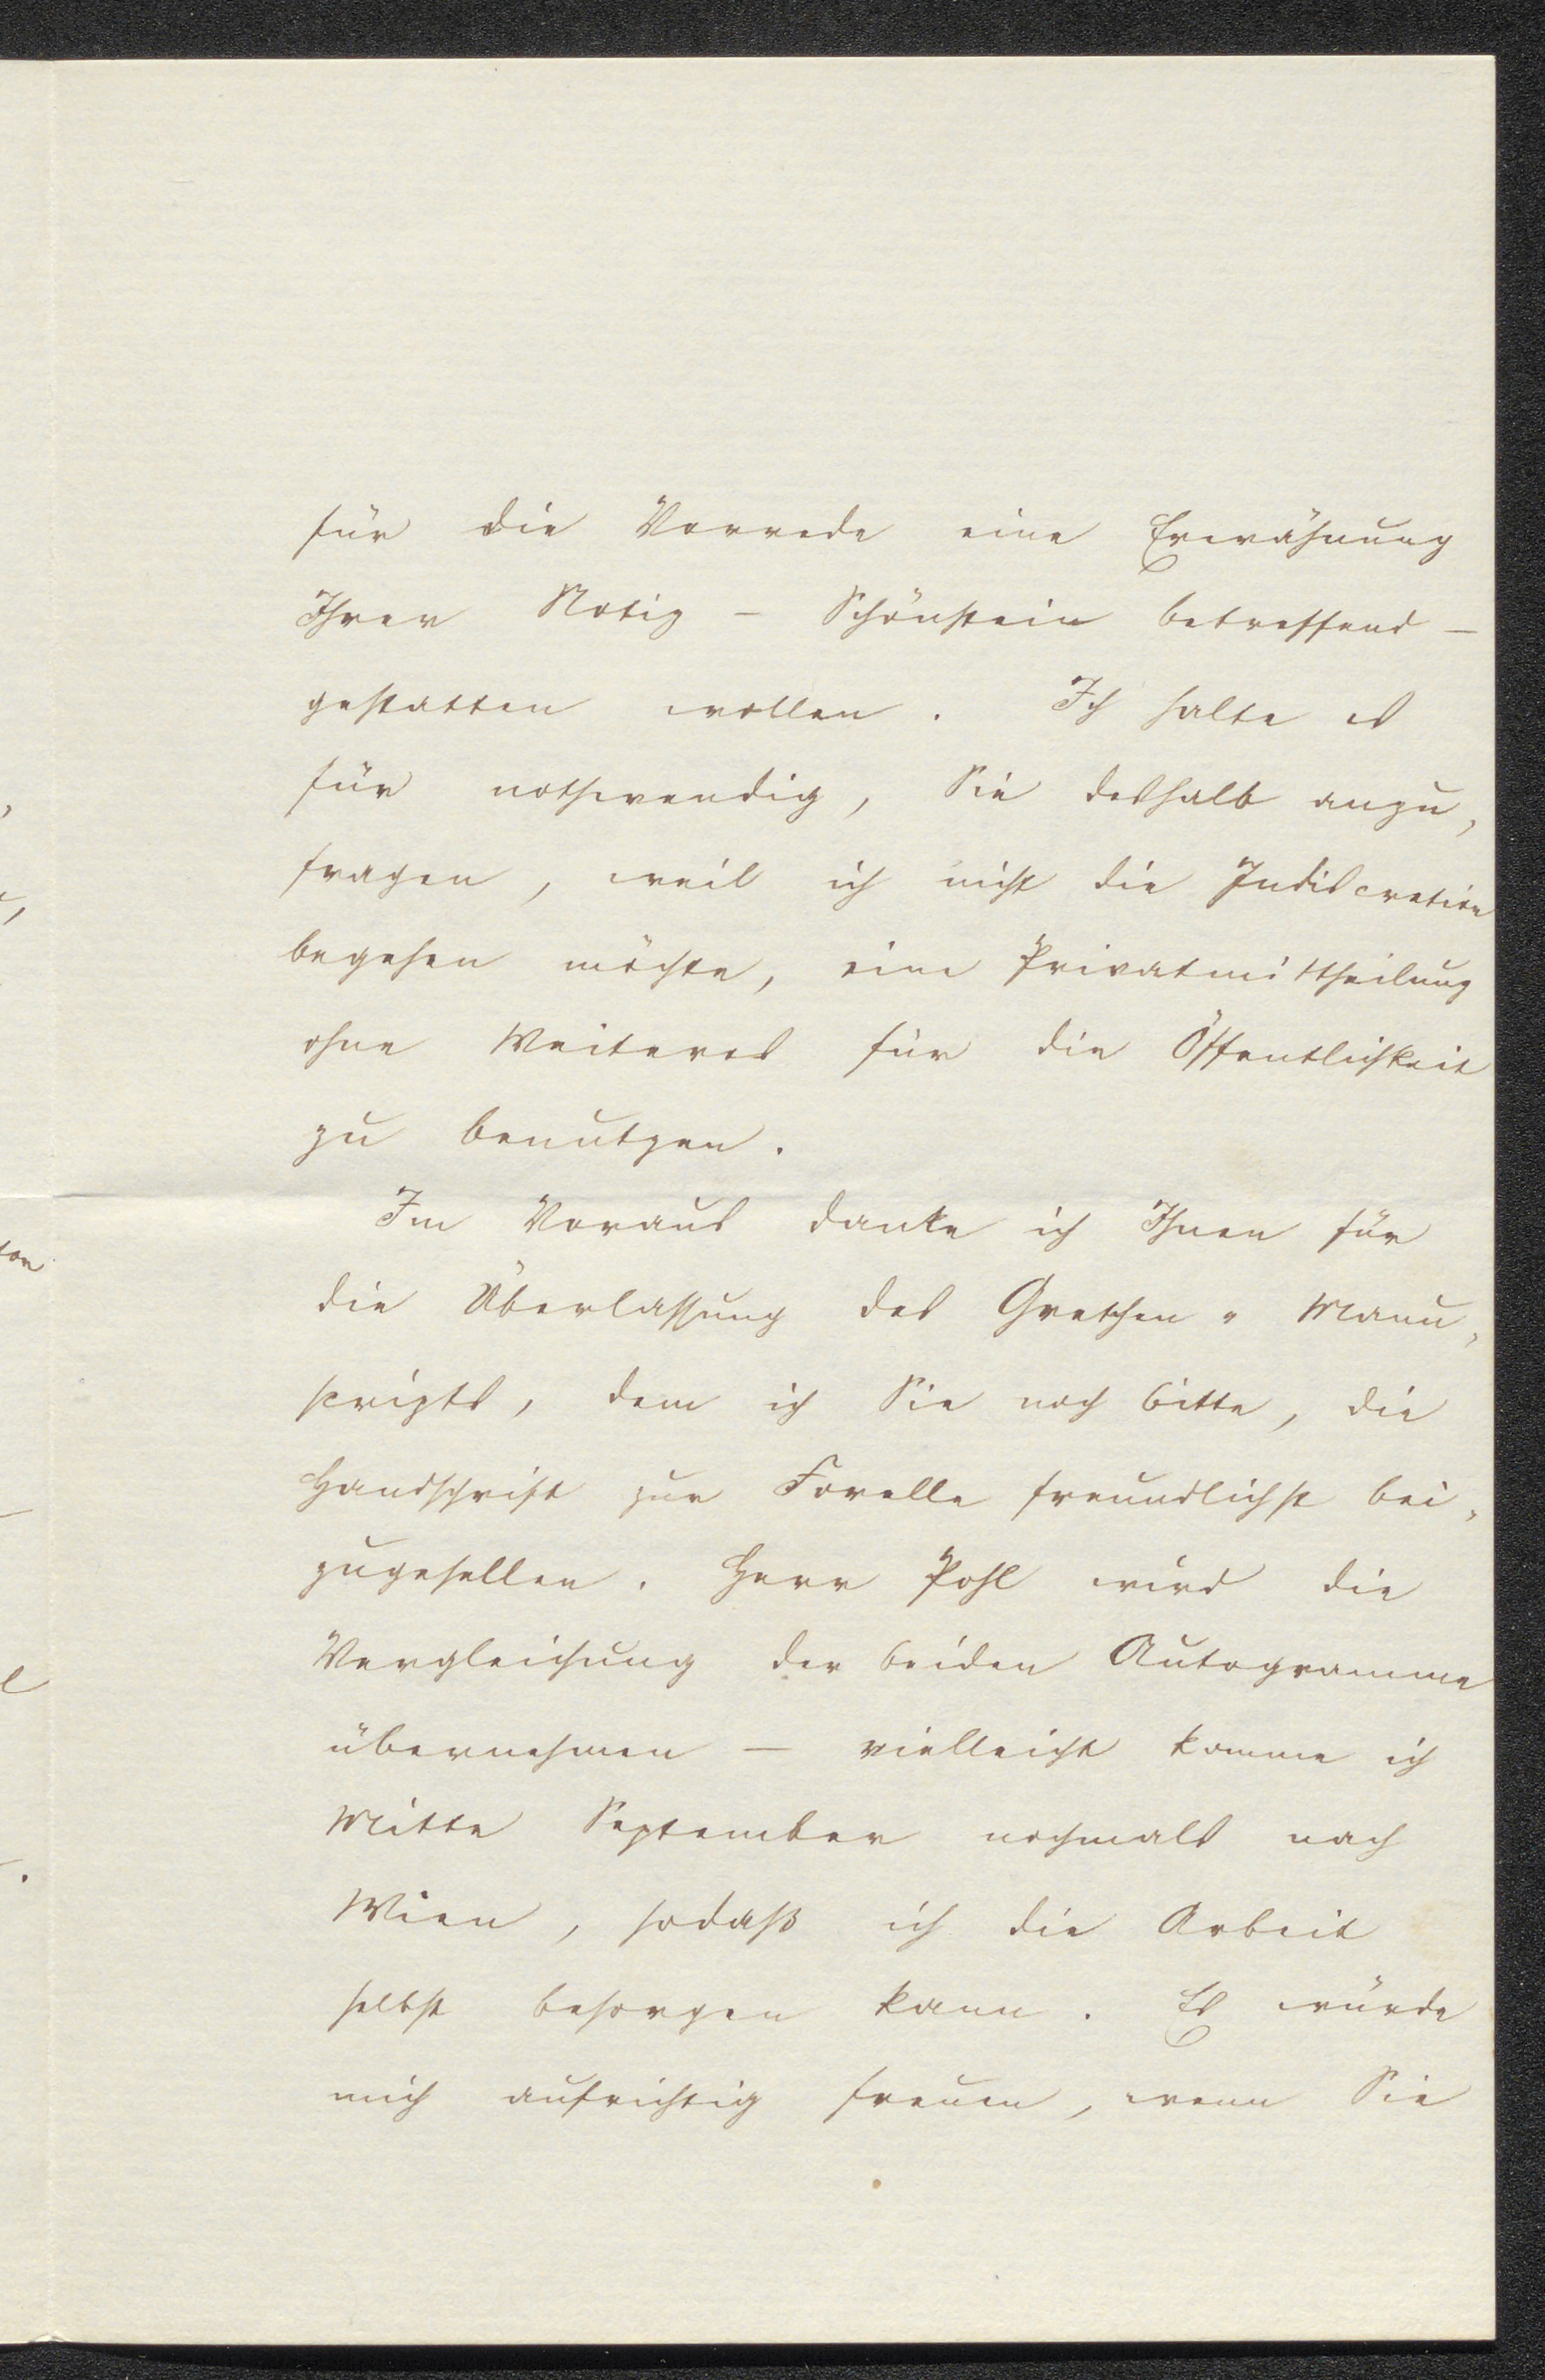 für die Vorrede eine Erwähnung
Ihrer Notiz – Schönstein betreffend –
gestatten wollen. Ich halte es
für nothwendig, Sie deshalb anzu-
fragen, weil ich nicht die Indiscretion
begehen möchte, eine Privatmittheilung
ohne Weiteres für die Öffentlichkeit
zu benutzen.
Im Voraus danke ich Ihnen für
die Überlassung des Gretchen-Manu-
scripts, dem ich Sie noch bitte, die
Handschrift zur Forelle freundlichst bei-
zugesellen. Herr Pohl wird die
Vergleichung der beiden Autogramme
übernehmen – vielleicht komme ich
Mitte September nochmals nach
Wien, sodaß ich die Arbeit
selbst besorgen kann. Es würde
mich aufrichtig freuen, wenn Sie